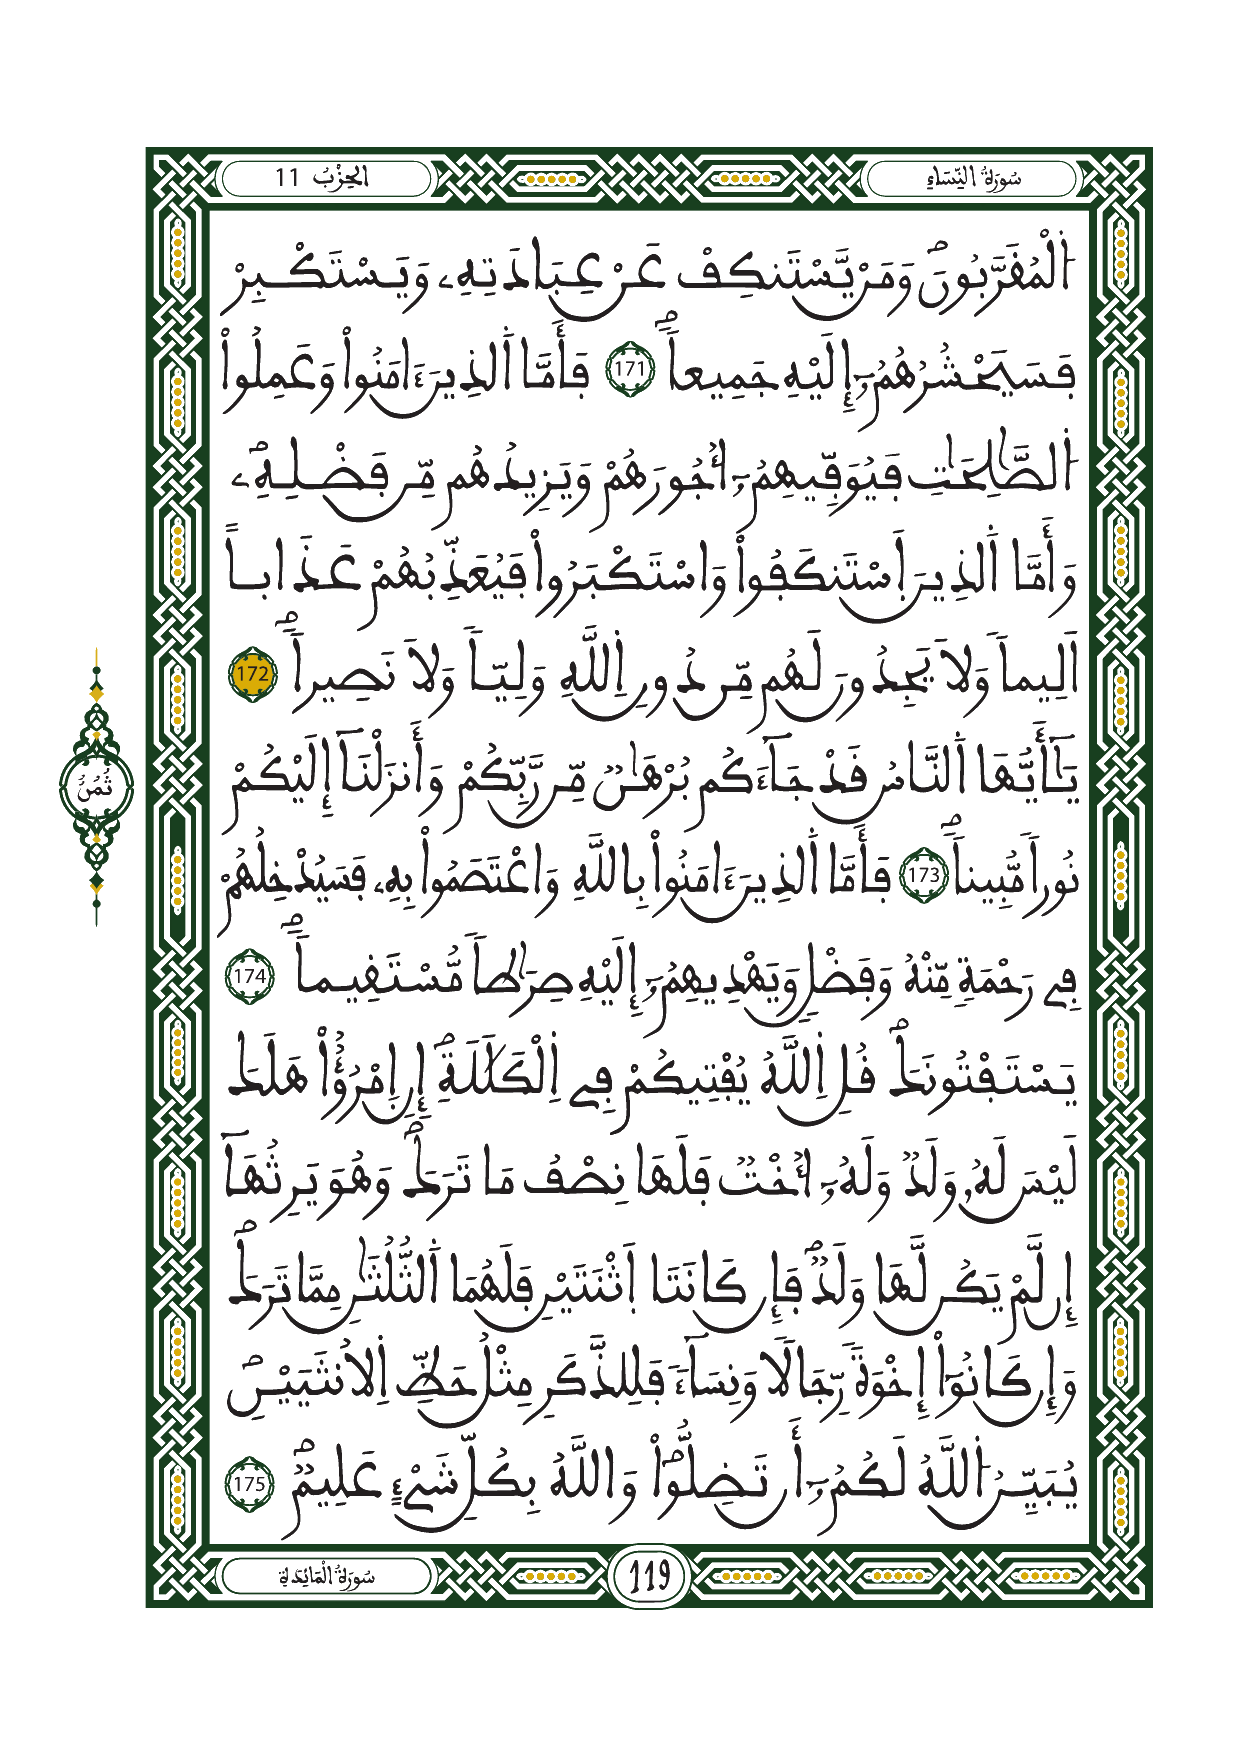 سُورَةُ النِّسَاءِ
الحِزْبُ 11
اَ۬لْمُقَرَّبُونَۖ وَمَنْ يَّسْتَنكِفْ عَنْ عِبَادَتِهِۦ وَيَسْتَكْبِرْ
فَسَيَحْشُرُهُمُۥٓ إِلَيْهِ جَمِيعاٗۖ 171 فَأَمَّا اَ۬لذِينَ ءَامَنُواْ وَعَمِلُواْ
اُ۬لصَّٰلِحَٰتِ فَيُوَفِّيهِمُۥٓ أُجُورَهُمْ وَيَزِيدُهُم مِّن فَضْلِهِۦۖ
وَأَمَّا اَ۬لذِينَ اَ۪سْتَنكَفُواْ وَاسْتَكْبَرُواْ فَيُعَذِّبُهُمْ عَذَاباً
اَلِيماٗ وَلَا يَجِدُونَ لَهُم مِّن دُونِ اِ۬للَّهِ وَلِيّاٗ وَلَا نَصِيراٗۖ 172
يَٰٓأَيُّهَا اَ۬لنَّاسُ قَدْ جَآءَكُم بُرْهَٰنٞ مِّن رَّبِّكُمْ وَأَنزَلْنَآ إِلَيْكُمْ
نُوراٗ مُّبِيناٗۖ 173 فَأَمَّا اَ۬لذِينَ ءَامَنُواْ بِاللَّهِ وَاعْتَصَمُواْ بِهِۦ فَسَيُدْخِلُهُمْ
فِے رَحْمَةٖ مِّنْهُ وَفَضْلٖ وَيَهْدِيهِمُۥٓ إِلَيْهِ صِرَٰطاٗ مُّسْتَقِيماٗۖ 174
يَسْتَفْتُونَكَۖ قُلِ اِ۬للَّهُ يُفْتِيكُمْ فِے اِ۬لْكَلَٰلَةِۖ إِنِ اِ۪مْرُؤٌاْ هَلَكَ
لَيْسَ لَهُۥ وَلَدٞ وَلَهُۥٓ أُخْتٞ فَلَهَا نِصْفُ مَا تَرَكَۖ وَهُوَ يَرِثُهَآ
إِن لَّمْ يَكُن لَّهَا وَلَدٞۖ فَإِن كَانَتَا اَ۪ثْنَتَيْنِ فَلَهُمَا اَ۬لثُّلُثَٰنِ مِمَّا تَرَكَۖ
وَإِن كَانُوٓاْ إِخْوَةٗ رِّجَالاٗ وَنِسَآءٗ فَلِلذَّكَرِ مِثْلُ حَظِّ اِ۬لُانثَيَيْنِۖ
يُبَيِّنُ اُ۬للَّهُ لَكُمُۥٓ أَن تَضِلُّواْۖ وَاللَّهُ بِكُلِّ شَےْءٍ عَلِيمٞۖ 175
ثُمُنُ
سُورَةُ الْمَائِدَةِ
119